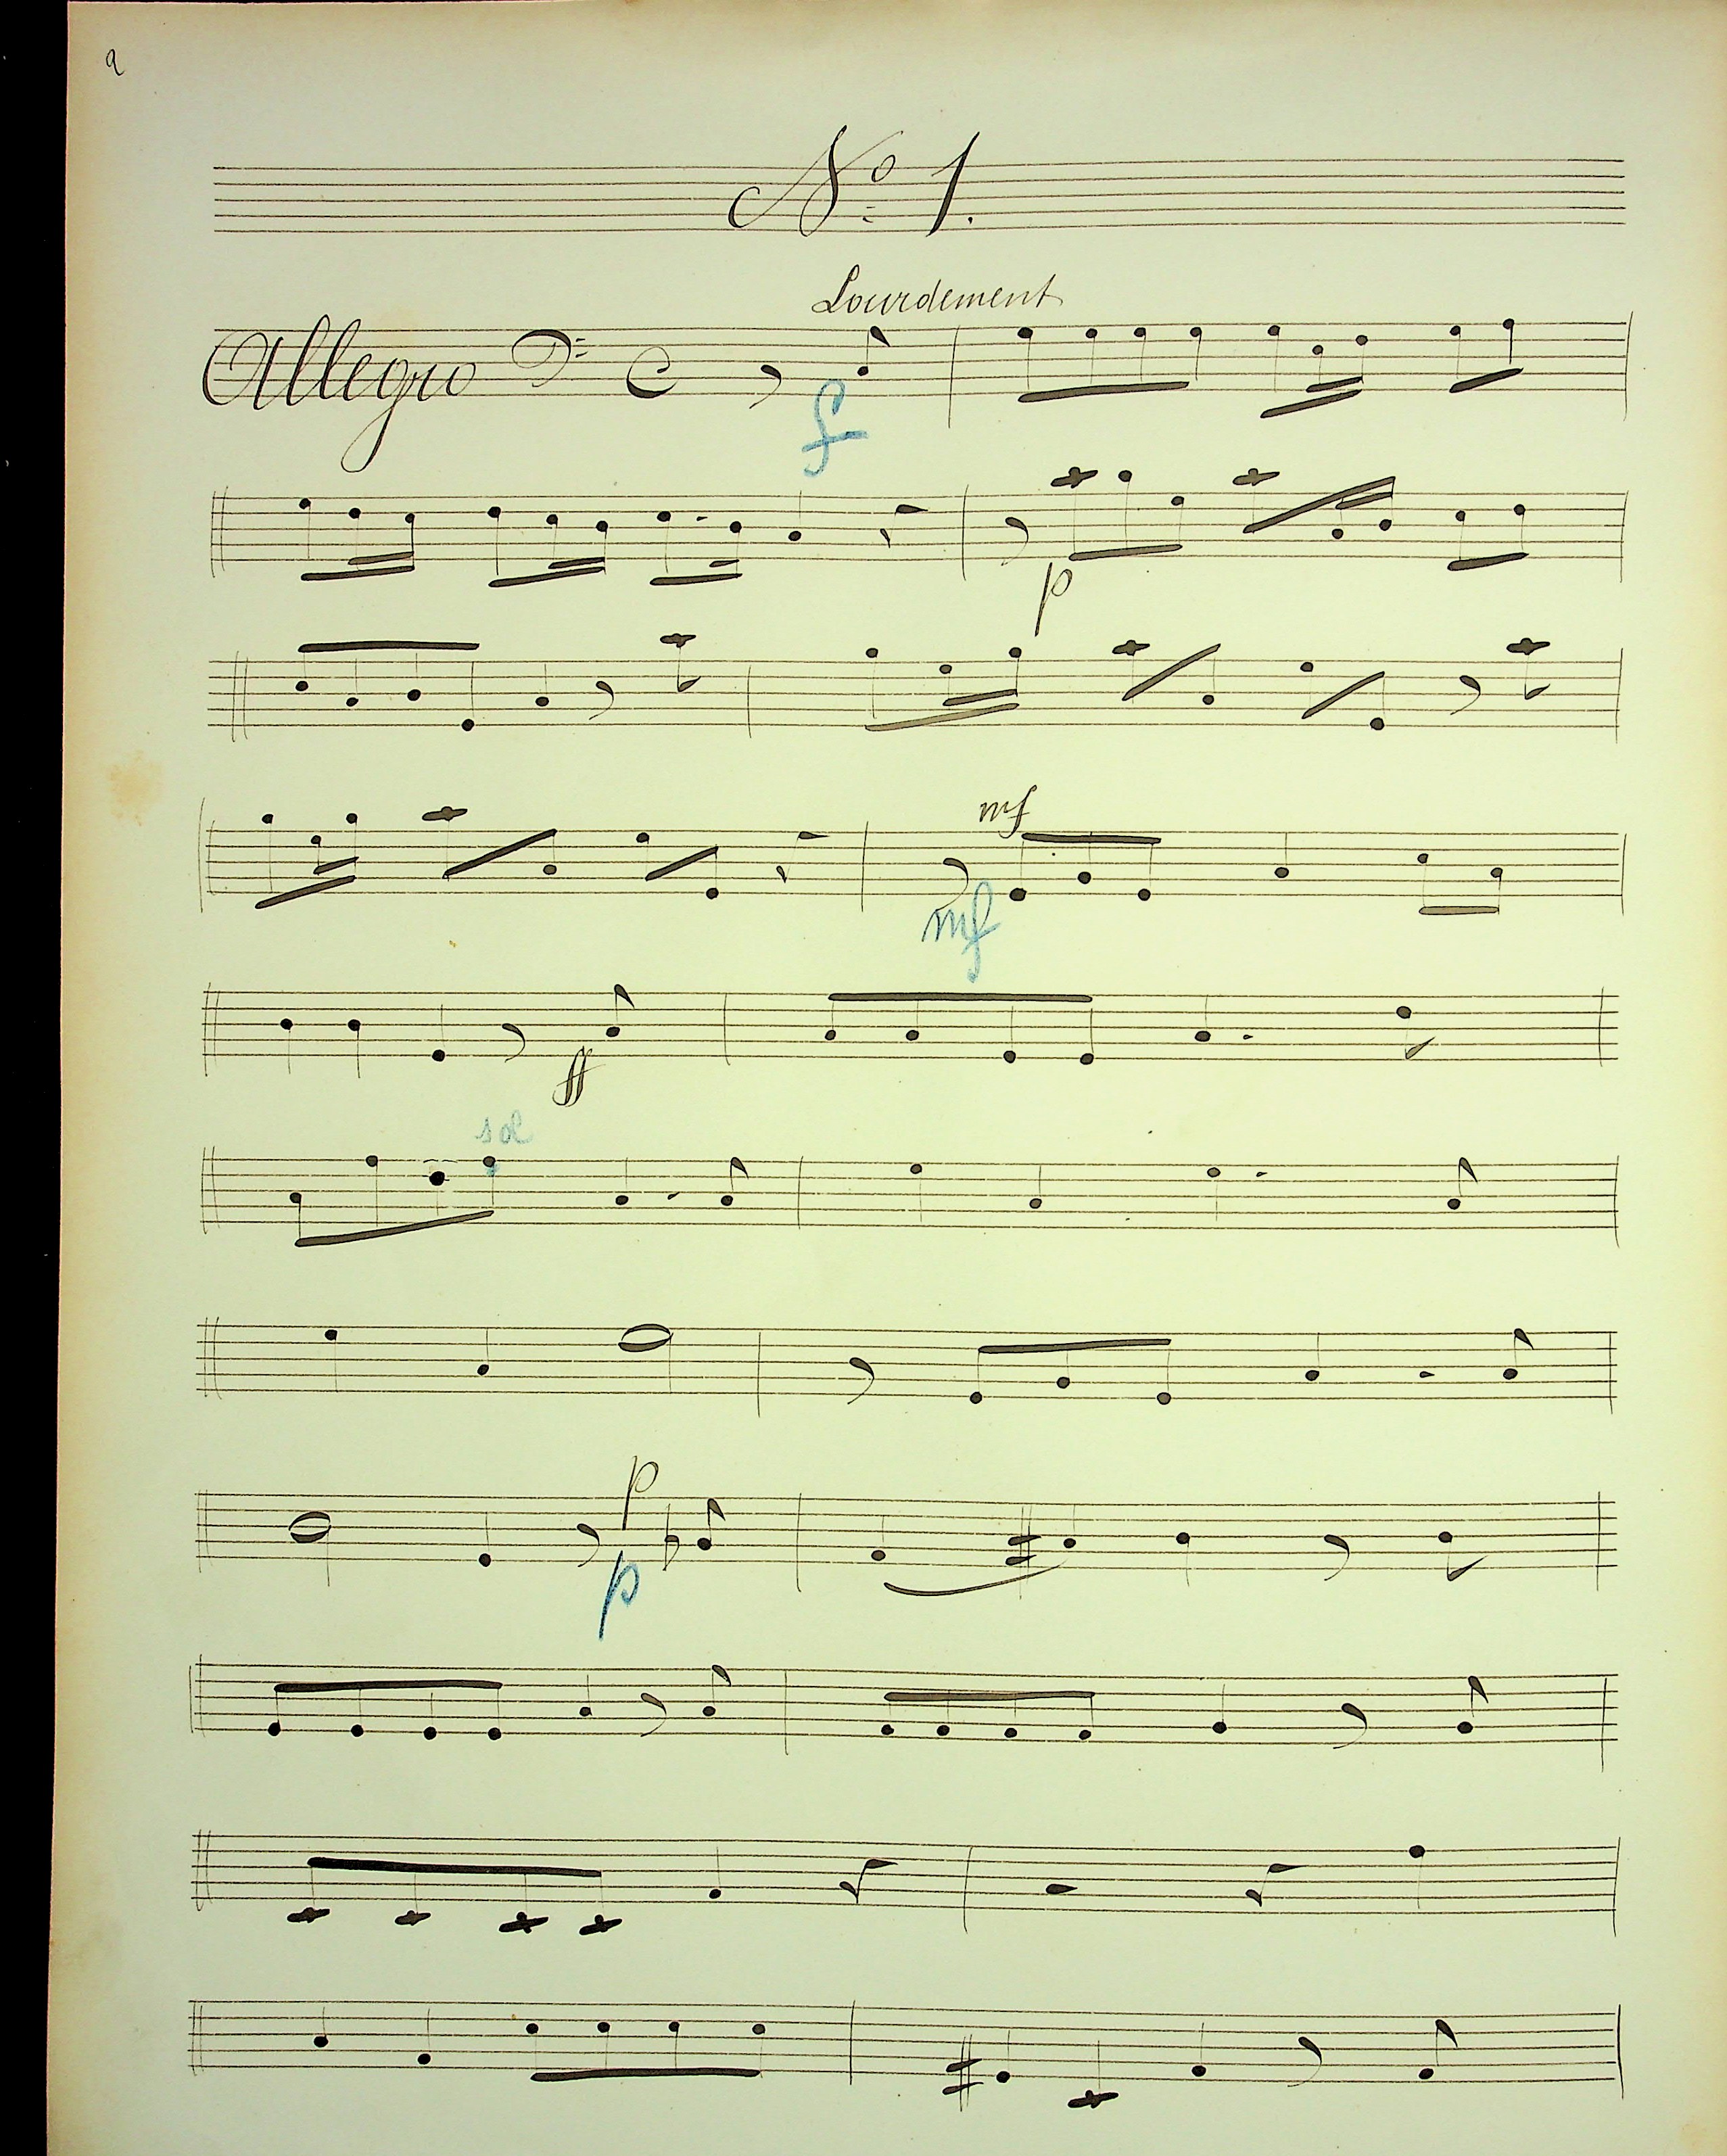 2
Nº 1.
Lourdement
Allegro
f
p
mf
mf
ff
sol
p
p